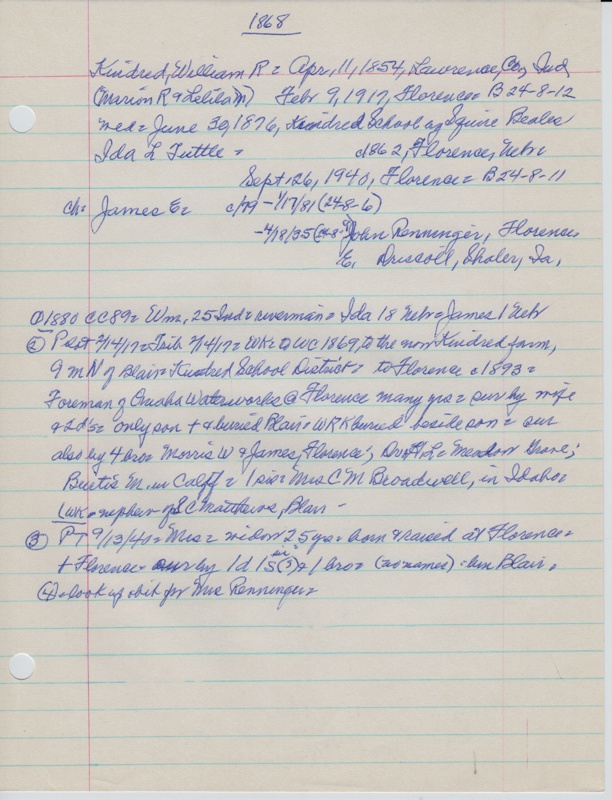 1868
Kindred, William R = Apr, 11, 1854, Lawrence, Co, Ind
(Merion R & Lelila M) Febr 9, 1917, Florence = B 24-8-12
med = June 30, 1876, Kindred School by Squire Beales
Ida L Tuttle = c1862, Florence, Nebr
Sept 26, 1940, Florence = B 24-8-11
ch = James E = c/79 - 1/17/81 (24-8-6)
-4/18/35 (24-8-9) John Renninger, Florence
E. Driscoll, Sholer, Ia,
① 1880 CC 89 = Wm, 25 Ind = riverman = Ida 18 Nebr = James 1 Nebr
② P 2/14/17 = Trib 2/14/17 = WRK @ WC 1869 to the now Kindred farm,
9 m N of Blair = Kindred School District = to Florence c1893 =
Foreman of Omaha Waterworks @ Florence many yrs = sur by wife
& 2 ds = only son + & buried Blair = WRK buried beside son = sur
also by 4 bro = Morris W & James, Florence; Dr L = Meadow Grove;
Burtis M. in Calif = 1 sis = Mrs C M Broadwell, in Idaho =
WRK = nephew of S C Matthews, Blair -
③ PT 9/13/41 = Mrs = widow 25 yrs = born & raised at Florence =
+ Florence = sur by 1 d 1 sis (?) & 1 bro = (no names) - bur Blair =
④ = look up obit for Mrs Renninger =